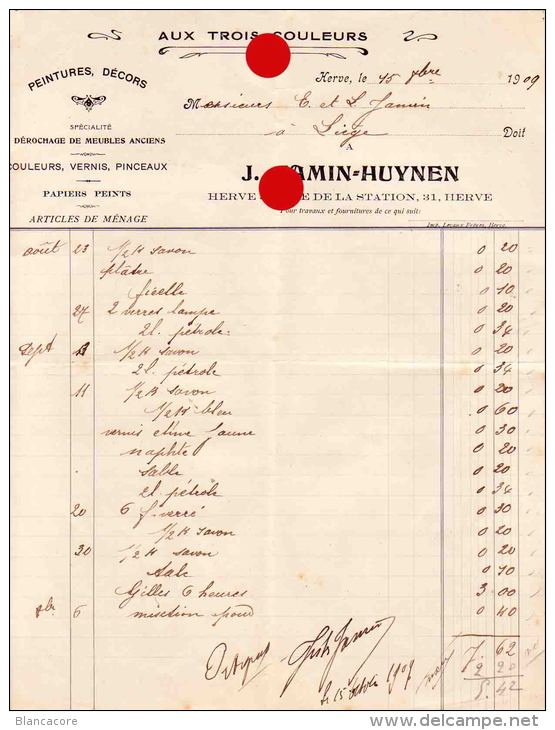 AUX TROIS COULEURS
PEINTURES, DÉCORS
SPÉCIALITÉ
DÉROCHAGE DE MEUBLES ANCIENS
COULEURS, VERNIS, PINCEAUX
PAPIERS PEINTS
ARTICLES DE MÉNAGE
Herve, le 15 1909
Messieurs E. et L. Jamin
à Liège Doit
A
J. JAMIN-HUYNEN
HERVE DE LA STATION, 31, HERVE
Pour travaux et fournitures de ce qui suit:
Imp. Levaux Frères, Herve.
août 23 1/2 K savon 0 20
plâtre 0 20
ficelle 0 10
27 2 verres lampe 0 20
2 l. pétrole 0 34
Sept 1/2 K savon 0 20
2 l. pétrole 0 34
11 1/2 K savon 0 20
1/2 K bleu 0 60
vernis jaune 0 30
naphte 0 20
sable 0 20
2 l. pétrole 0 34
20 6 f. verré 0 30
1/2 K savon 0 20
30 1/2 K savon 0 20
0 10
Gilles 6 heures 3.00
6 0 40
7.62
2 20
5.42
Jamin
le 15 octobre 1909
Blancacore
delcampe.net